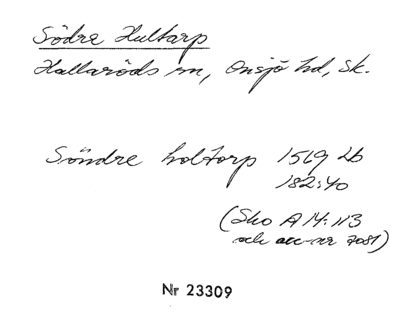 Södre Hultarp
Hallaröds sn, Onsjö hd, Sk.
Söndre holtorp 1569 Lb
182:40
(Sko A 14:113
och acc-nr 7081)
Nr 23309